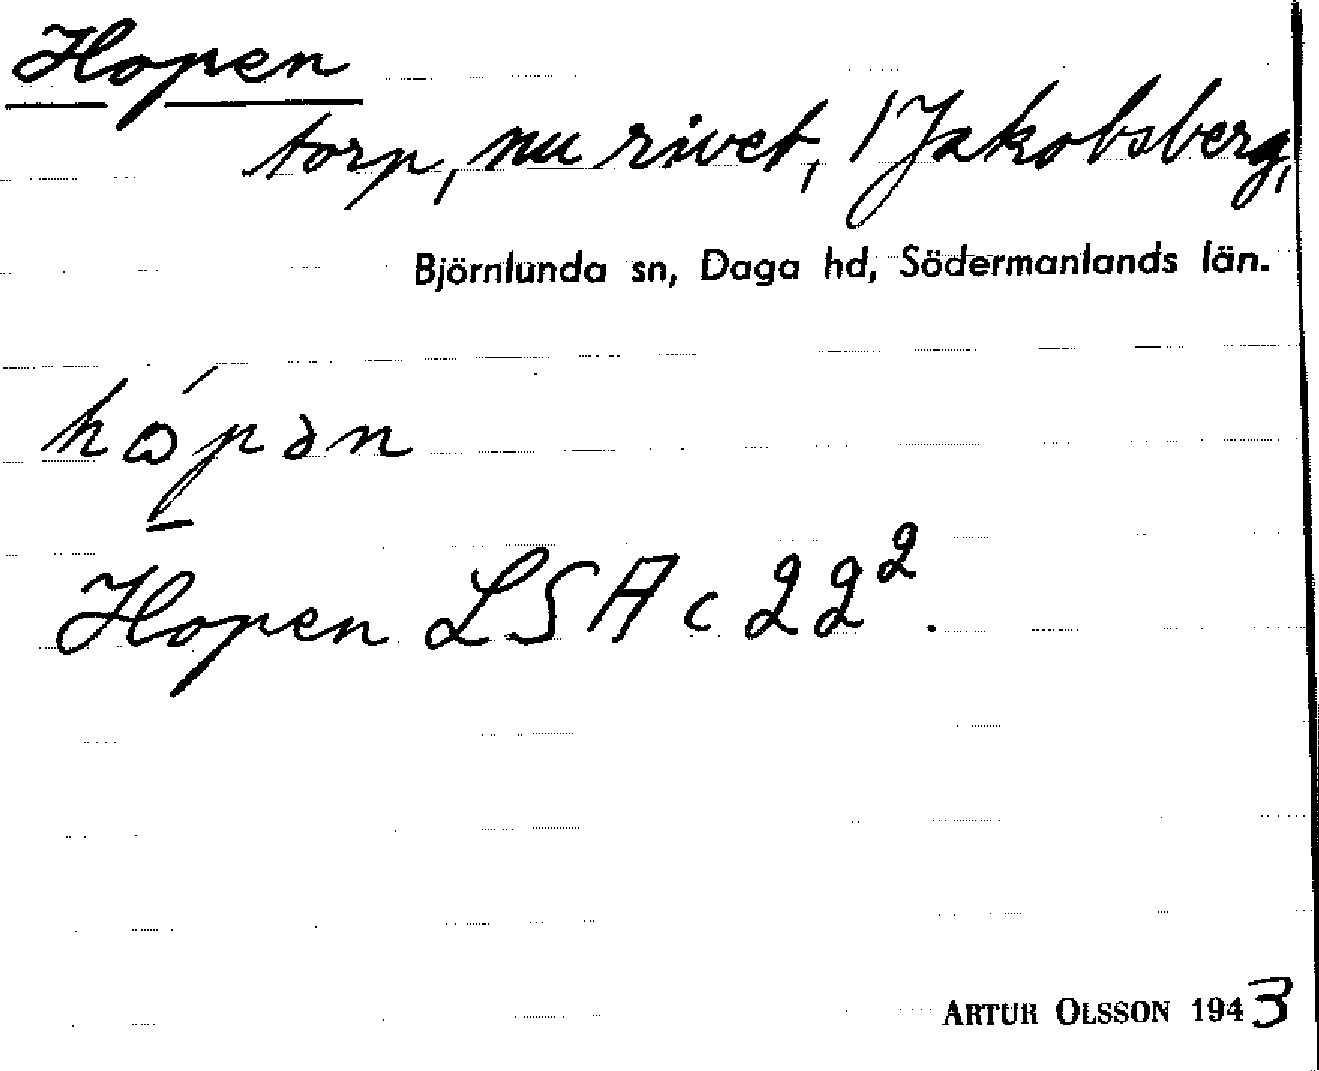 Hopen
torp, nu rivet, / Jakobsberg,
Björnlunda sn, Daga hd, Södermanlands län.
hópən
Hopen LSA c 22².
ARTUR OLSSON 1943